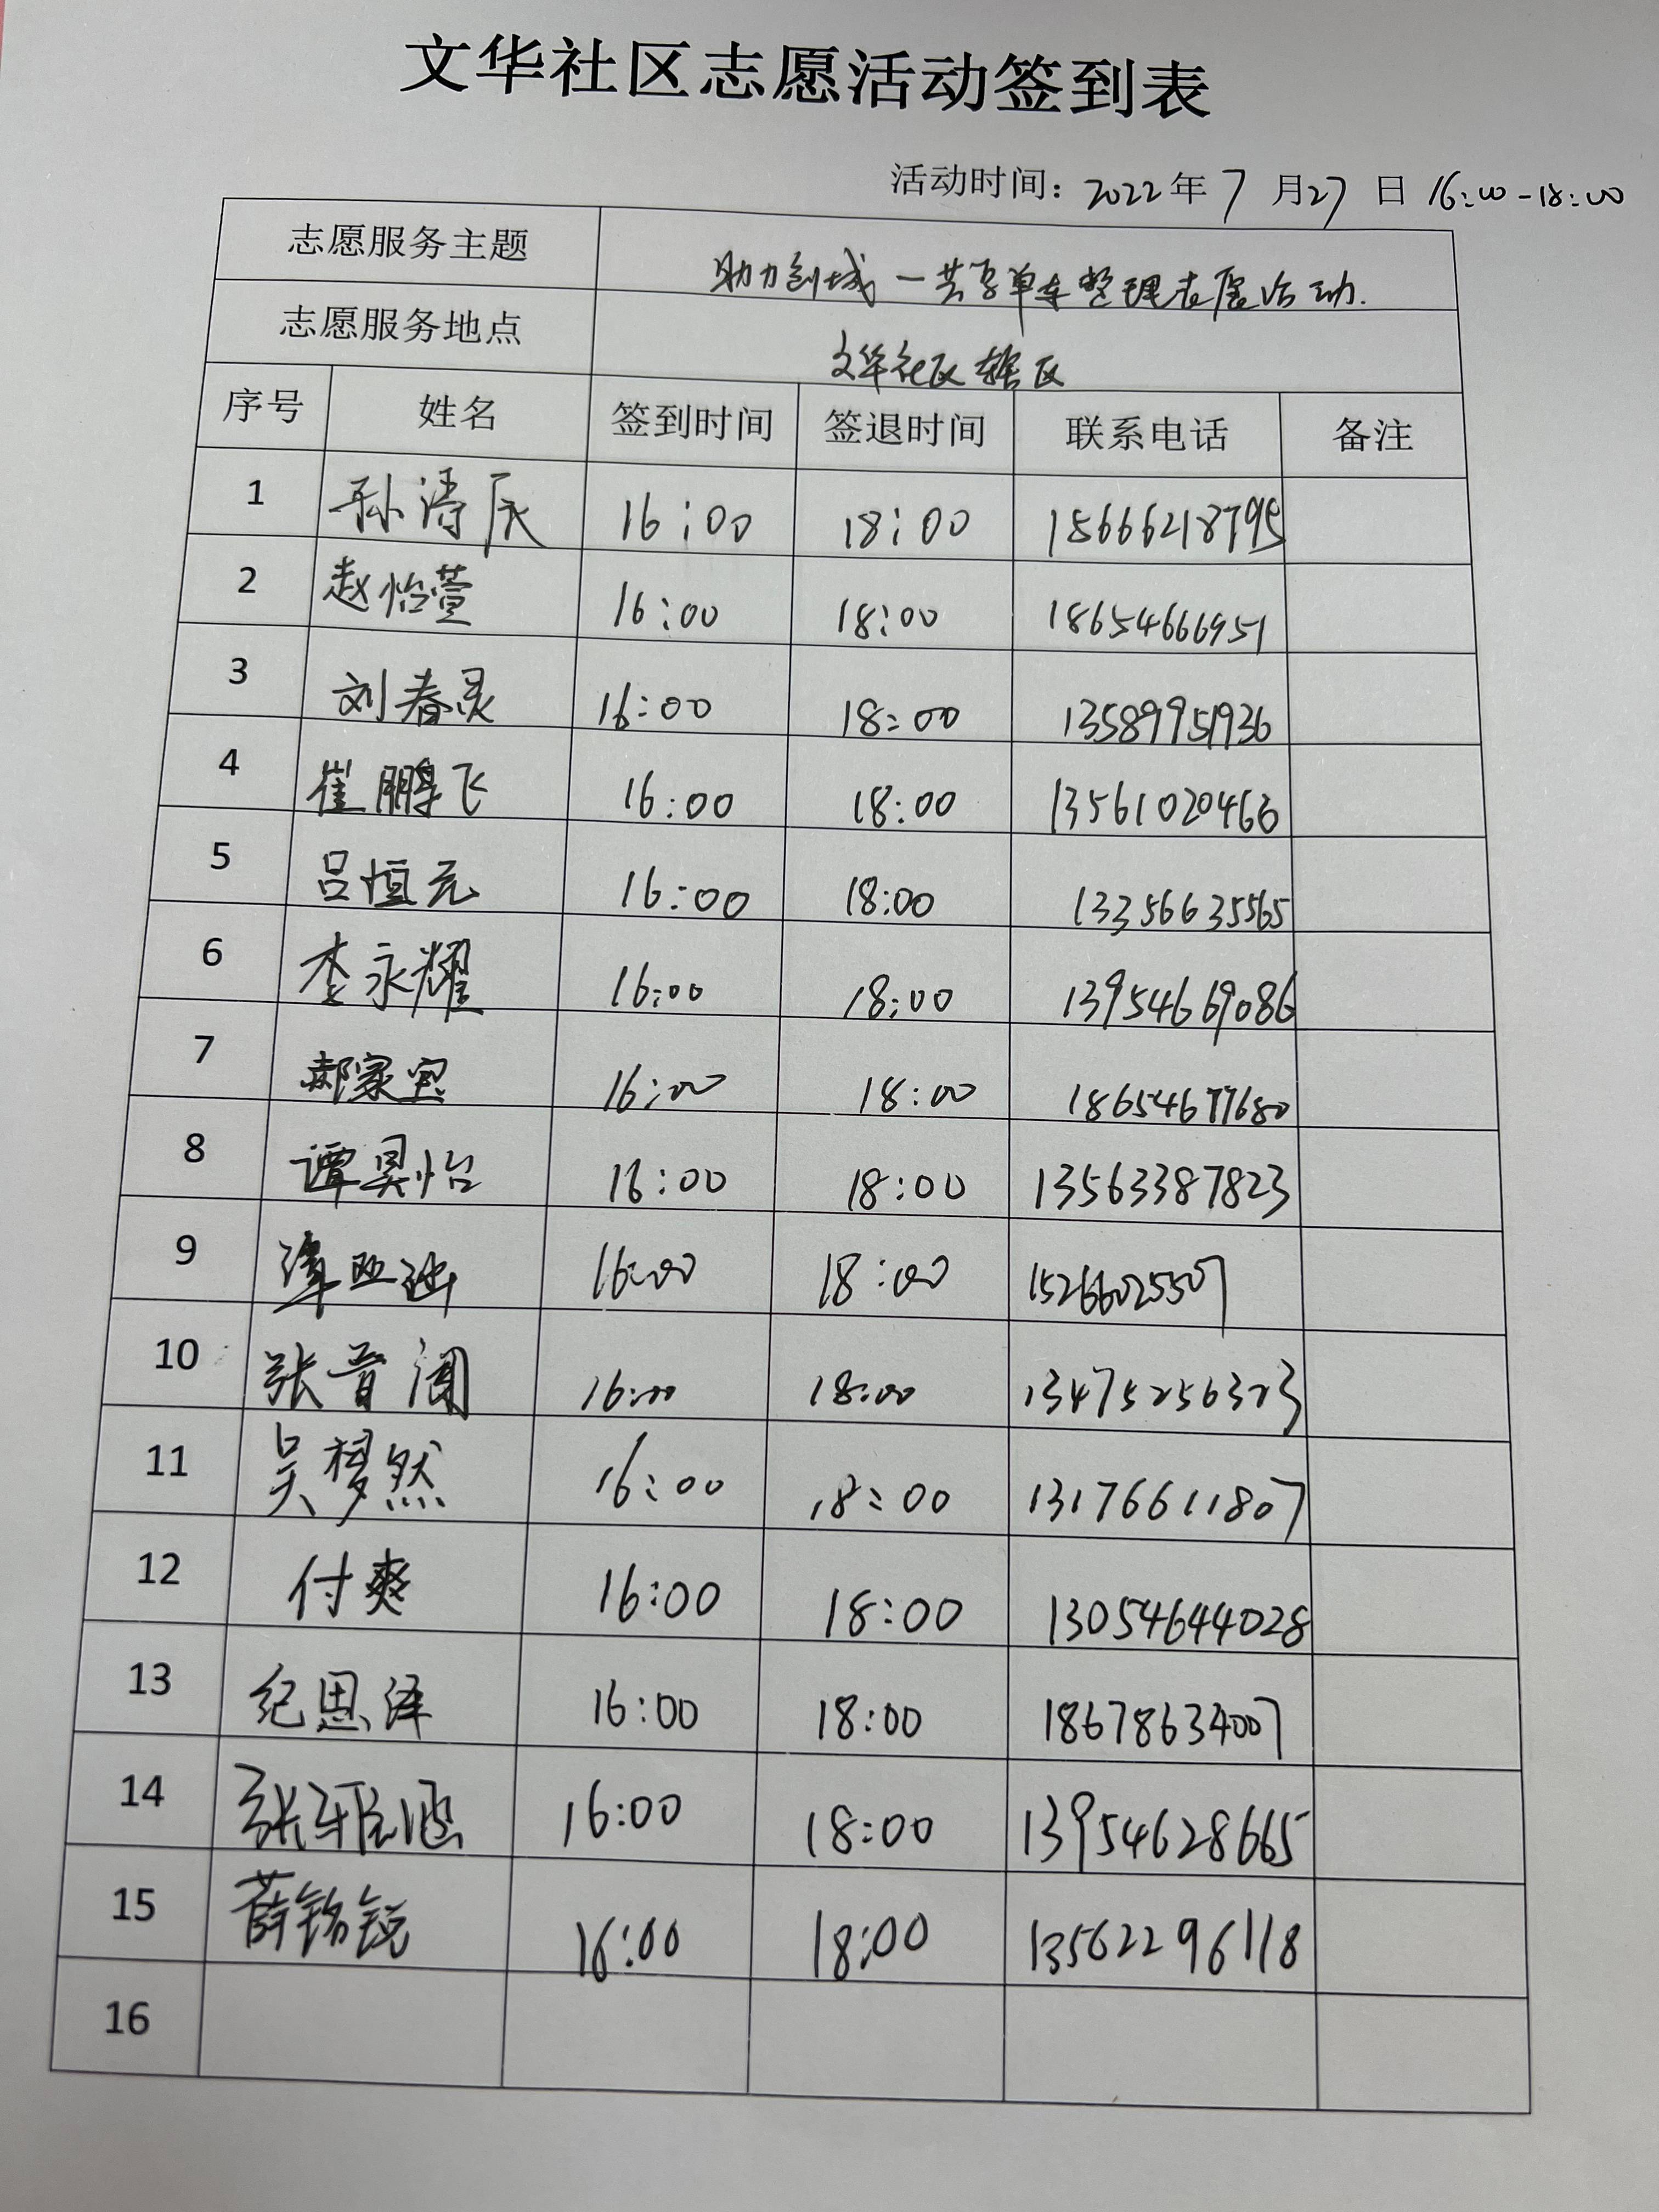 文华社区志愿活动签到表
活动时间：2022年7月27日 16:00-18:00
志愿服务主题 助力创城—共享单车整理志愿活动.
志愿服务地点 文华社区辖区
序号 姓名 签到时间 签退时间 联系电话 备注
1 孙涛辰 16:00 18:00 15666218795
2 赵怡萱 16:00 18:00 18654666951
3 刘春灵 16:00 18:00 13589951936
4 崔鹏飞 16:00 18:00 13561020463
5 吕恒元 16:00 18:00 13356635565
6 李永耀 16:00 18:00 13954669086
7 郝家宝 16:00 18:00 18654677680
8 谭昊怡 16:00 18:00 13563387823
9 16:00 18:00 15266025507
10 张晋阁 16:00 18:00 13475256323
11 吴梦然 16:00 18:00 13176611807
12 付爽 16:00 18:00 13054644028
13 纪思泽 16:00 18:00 18678634007
14 张雅涵 16:00 18:00 13954628665
15 薛铭锐 16:00 18:00 13562296118
16